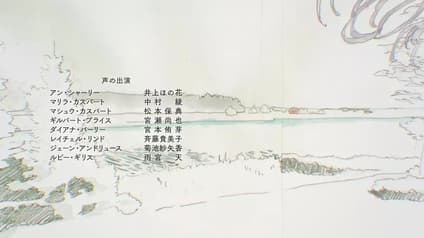 声の出演
アン・シャーリー 井上ほの花
マリラ・カスバート 中村 綾
マシュウ・カスバート 松本保典
ギルバート・ブライス 宮瀬尚也
ダイアナ・バーリー 宮本侑芽
レイチェル・リンド 斉藤貴美子
ジェーン・アンドリュース 菊池紗矢香
ルビー・ギリス 雨宮 天